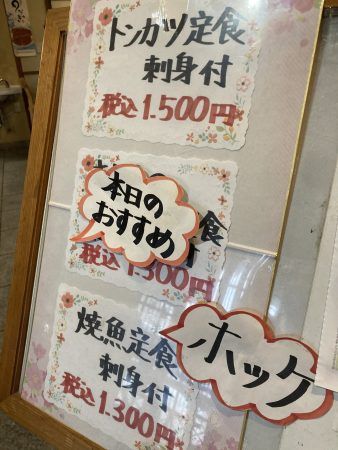 トンカツ定食
刺身付
税込1.500円
本日の
おすすめ
食
付
税込1.300円
焼魚定食
刺身付
税込1.300円
ホッケ